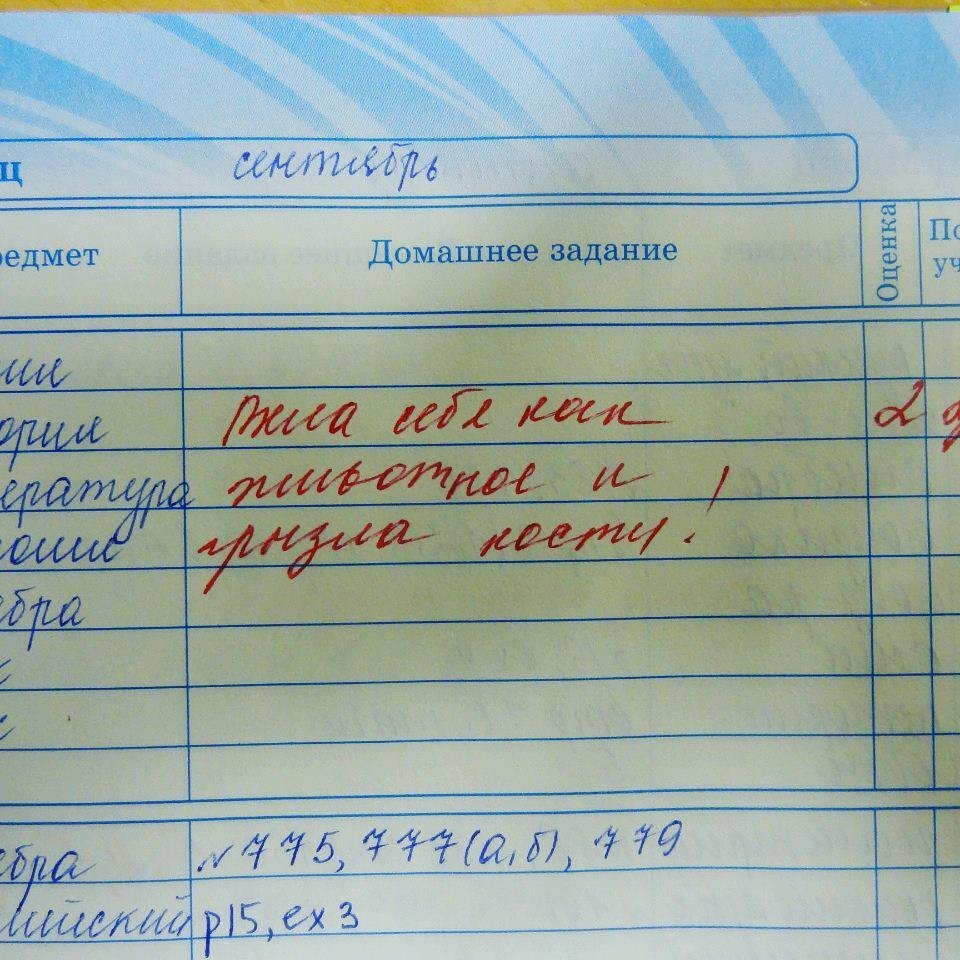 ц сентябрь
редмет Домашнее задание Оценка По
уч
ория Вела себя как 2
ература животное и
грызла кости!
ебра
ебра № 775, 777(а,б), 779
лийский p15, ex 3